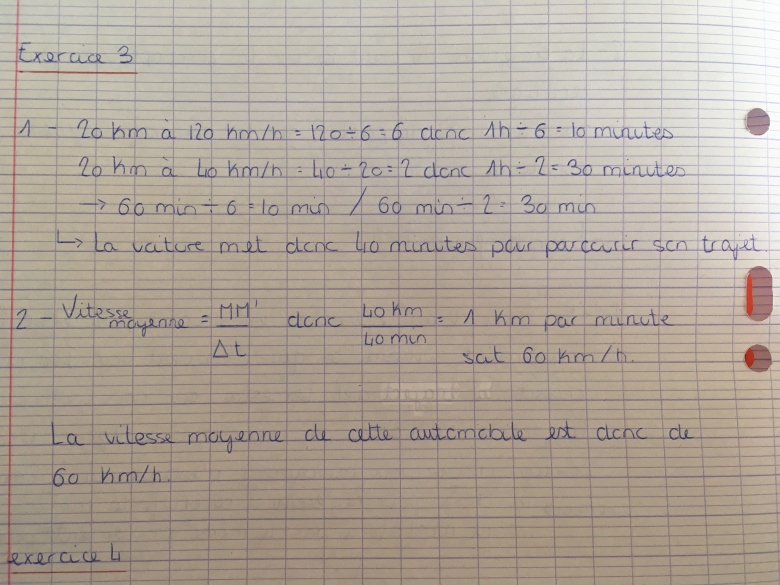 Exercice 3
1 - 20 Km à 120 Km/h = 120÷6 = 6 donc 1h ÷ 6 = 10 minutes
20 Km à 40 Km/h = 40 ÷ 20 = 2 donc 1h ÷ 2 = 30 minutes
→ 60 min ÷ 6 = 10 min / 60 min ÷ 2 = 30 min
↳ La voiture met donc 40 minutes pour parcourir son trajet.
2 - Vitesse moyenne = MM' / Δt donc 40 Km / 40 min = 1 Km par minute
soit 60 Km/h.
La vitesse moyenne de cette automobile est donc de
60 Km/h.
exercice 4